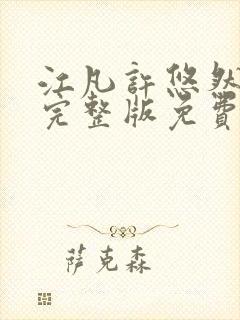 江凡許悠然
完整版免費
萨克森